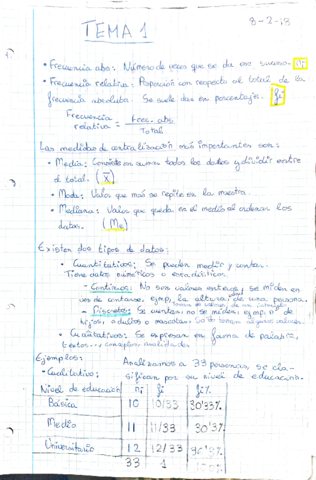 TEMA 1
8-2-18
• Frecuencia abs: Número de veces que se da ese suceso. ni
• Frecuencia relativa: Proporción con respecto al total de la
frecuencia absoluta. Se suele dar en porcentajes. fi
Frecuencia relativa = Frec. abs / Total
Las medidas de centralización más importantes son:
• Media: Consiste en sumar todos los datos y dividir entre
el total. (x̄)
• Moda: Valor que más se repite en la muestra.
• Mediana: Valor que queda en el medio al ordenar los
datos. (Me)
Existen dos tipos de datos:
• Cuantitativos: Se pueden medir y contar.
Tiene datos numéricos o estadísticos.
- Continuos: No son valores enteros, se miden en
vez de contarse, ejmp, la altura de una persona.
- Discretos: Se cuentan, no se miden, ejmp, nº de
hijos, adultos o mascotas.
• Cualitativos: Se expresan en forma de palabras,
textos...
Ejemplos:
Analizamos a 33 personas, se cla-
• Cualitativo:
sifican por su nivel de educación.
Nivel de educación ni fi fi%
Básica 10 10/33 30'33%
Medio 11 11/33 30'3%
Universitario 12 12/33
33 1